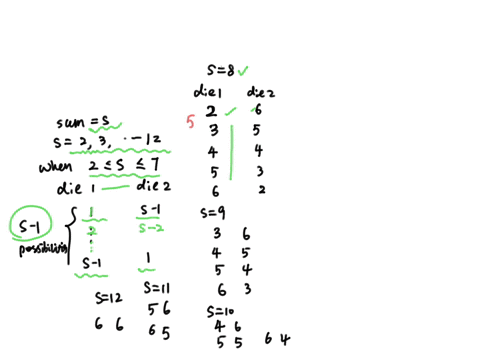 sum = S
S = 2, 3, ... 12
when 2 ≤ S ≤ 7
die 1 — die 2
S-1 possibilities
1 S-1
2 S-2
⋮
S-1 1
S=12
6 6
S=11
5 6
6 5
S=8 ✓
die 1 die 2
5
2 ✓ 6
3 5
4 4
5 3
6 2
S=9
3 6
4 5
5 4
6 3
S=10
4 6
5 5 6 4